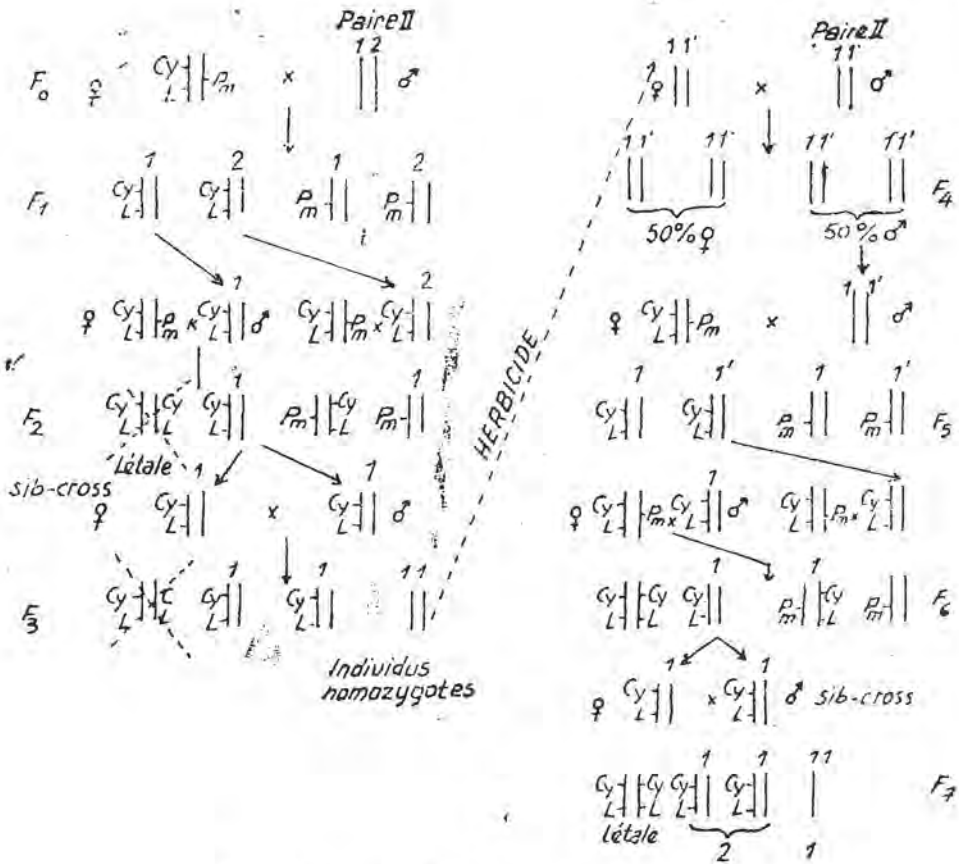 Paire II
1 2
F0 ♀ Cy L Pm x ♂
1 2 1 2
F1 Cy L Cy L Pm Pm
1 2
♀ Cy L Pm x Cy L ♂ Cy L Pm x Cy L
1 1
F2 Cy L Cy L Cy L Pm Cy L Pm
Létale
sib-cross
1 1
♀ Cy L x Cy L ♂
1 1 11
F3 Cy L C L Cy L Cy L
Individus
homozygotes
HERBICIDE
Paire II
1 1' 1 1'
1
♀ x ♂
1 1' 1 1' 1 1' 1 1'
F4
50% ♀ 50% ♂
1 1'
♀ Cy L Pm x ♂
1 1' 1 1'
Cy L Cy L Pm Pm F5
1
♀ Cy L Pm x Cy L ♂ Cy L Pm x Cy L
1 1
Cy L Cy L Cy L Pm Cy L Pm F6
1 1
♀ Cy L x Cy L ♂ sib-cross
1 1 11
Cy L Cy L Cy L Cy L F7
Létale
2 1